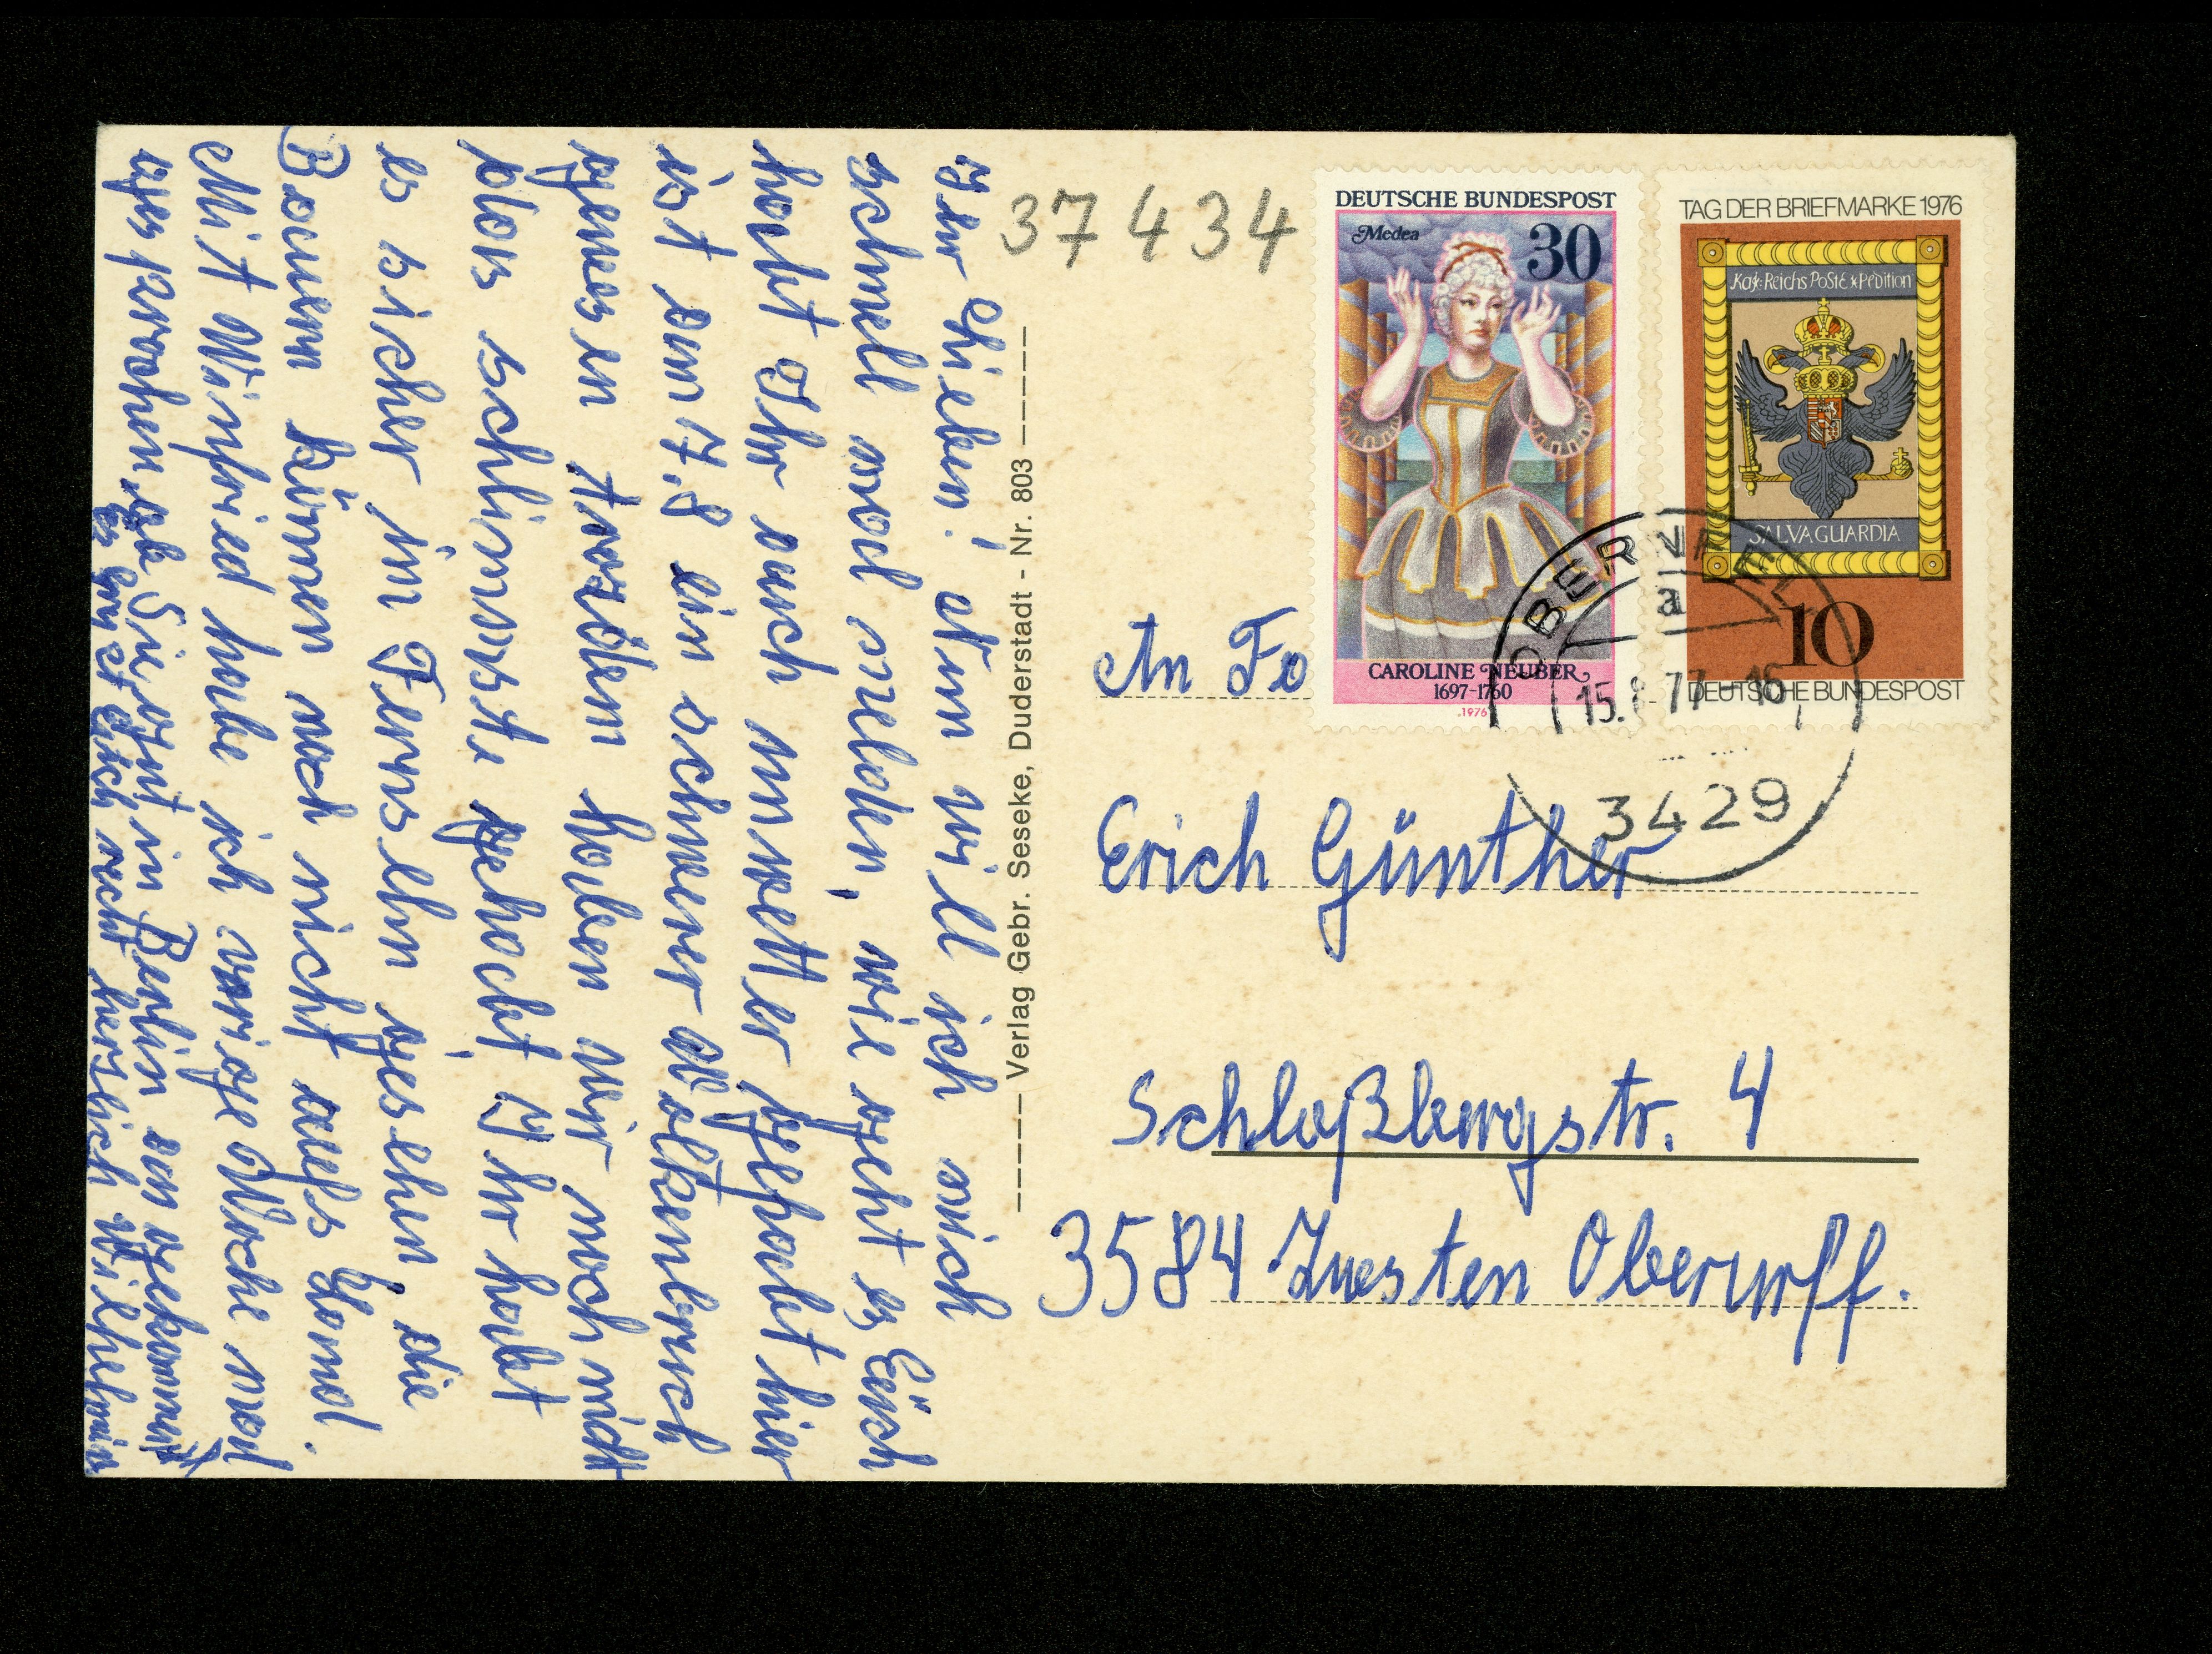 Ihr Lieben! Nun will ich mich
schnell mal melden, wie geht es Euch
habt Ihr auch unwetter gehabt hier
ist am 7.8 ein schwerer Wolkenbruch
gewesen trozdem haben wir noch nicht
das schlimmste gehabt, Ihr habt
es sicher im Fernsehn gesehen, die
Bauern können noch nicht aufs Land.
Mit Winfried habe ich vorige Woche mal
gesprochen als Sie in Berlin angekommen
es grüßt Euch recht herzlich Wilhelmine
Verlag Gebr. Seseke, Duderstadt - Nr. 803
37434
DEUTSCHE BUNDESPOST
Medea
30
CAROLINE NEUBER
1697-1760
1976
TAG DER BRIEFMARKE 1976
Kays: Reichs Post Expedition
SALVA GUARDIA
10
DEUTSCHE BUNDESPOST
OBERNFELD
a
15.8.77-16
3429
An Fa
Erich Günther
Schloßbergstr. 4
3584 Zwesten Oberurff.